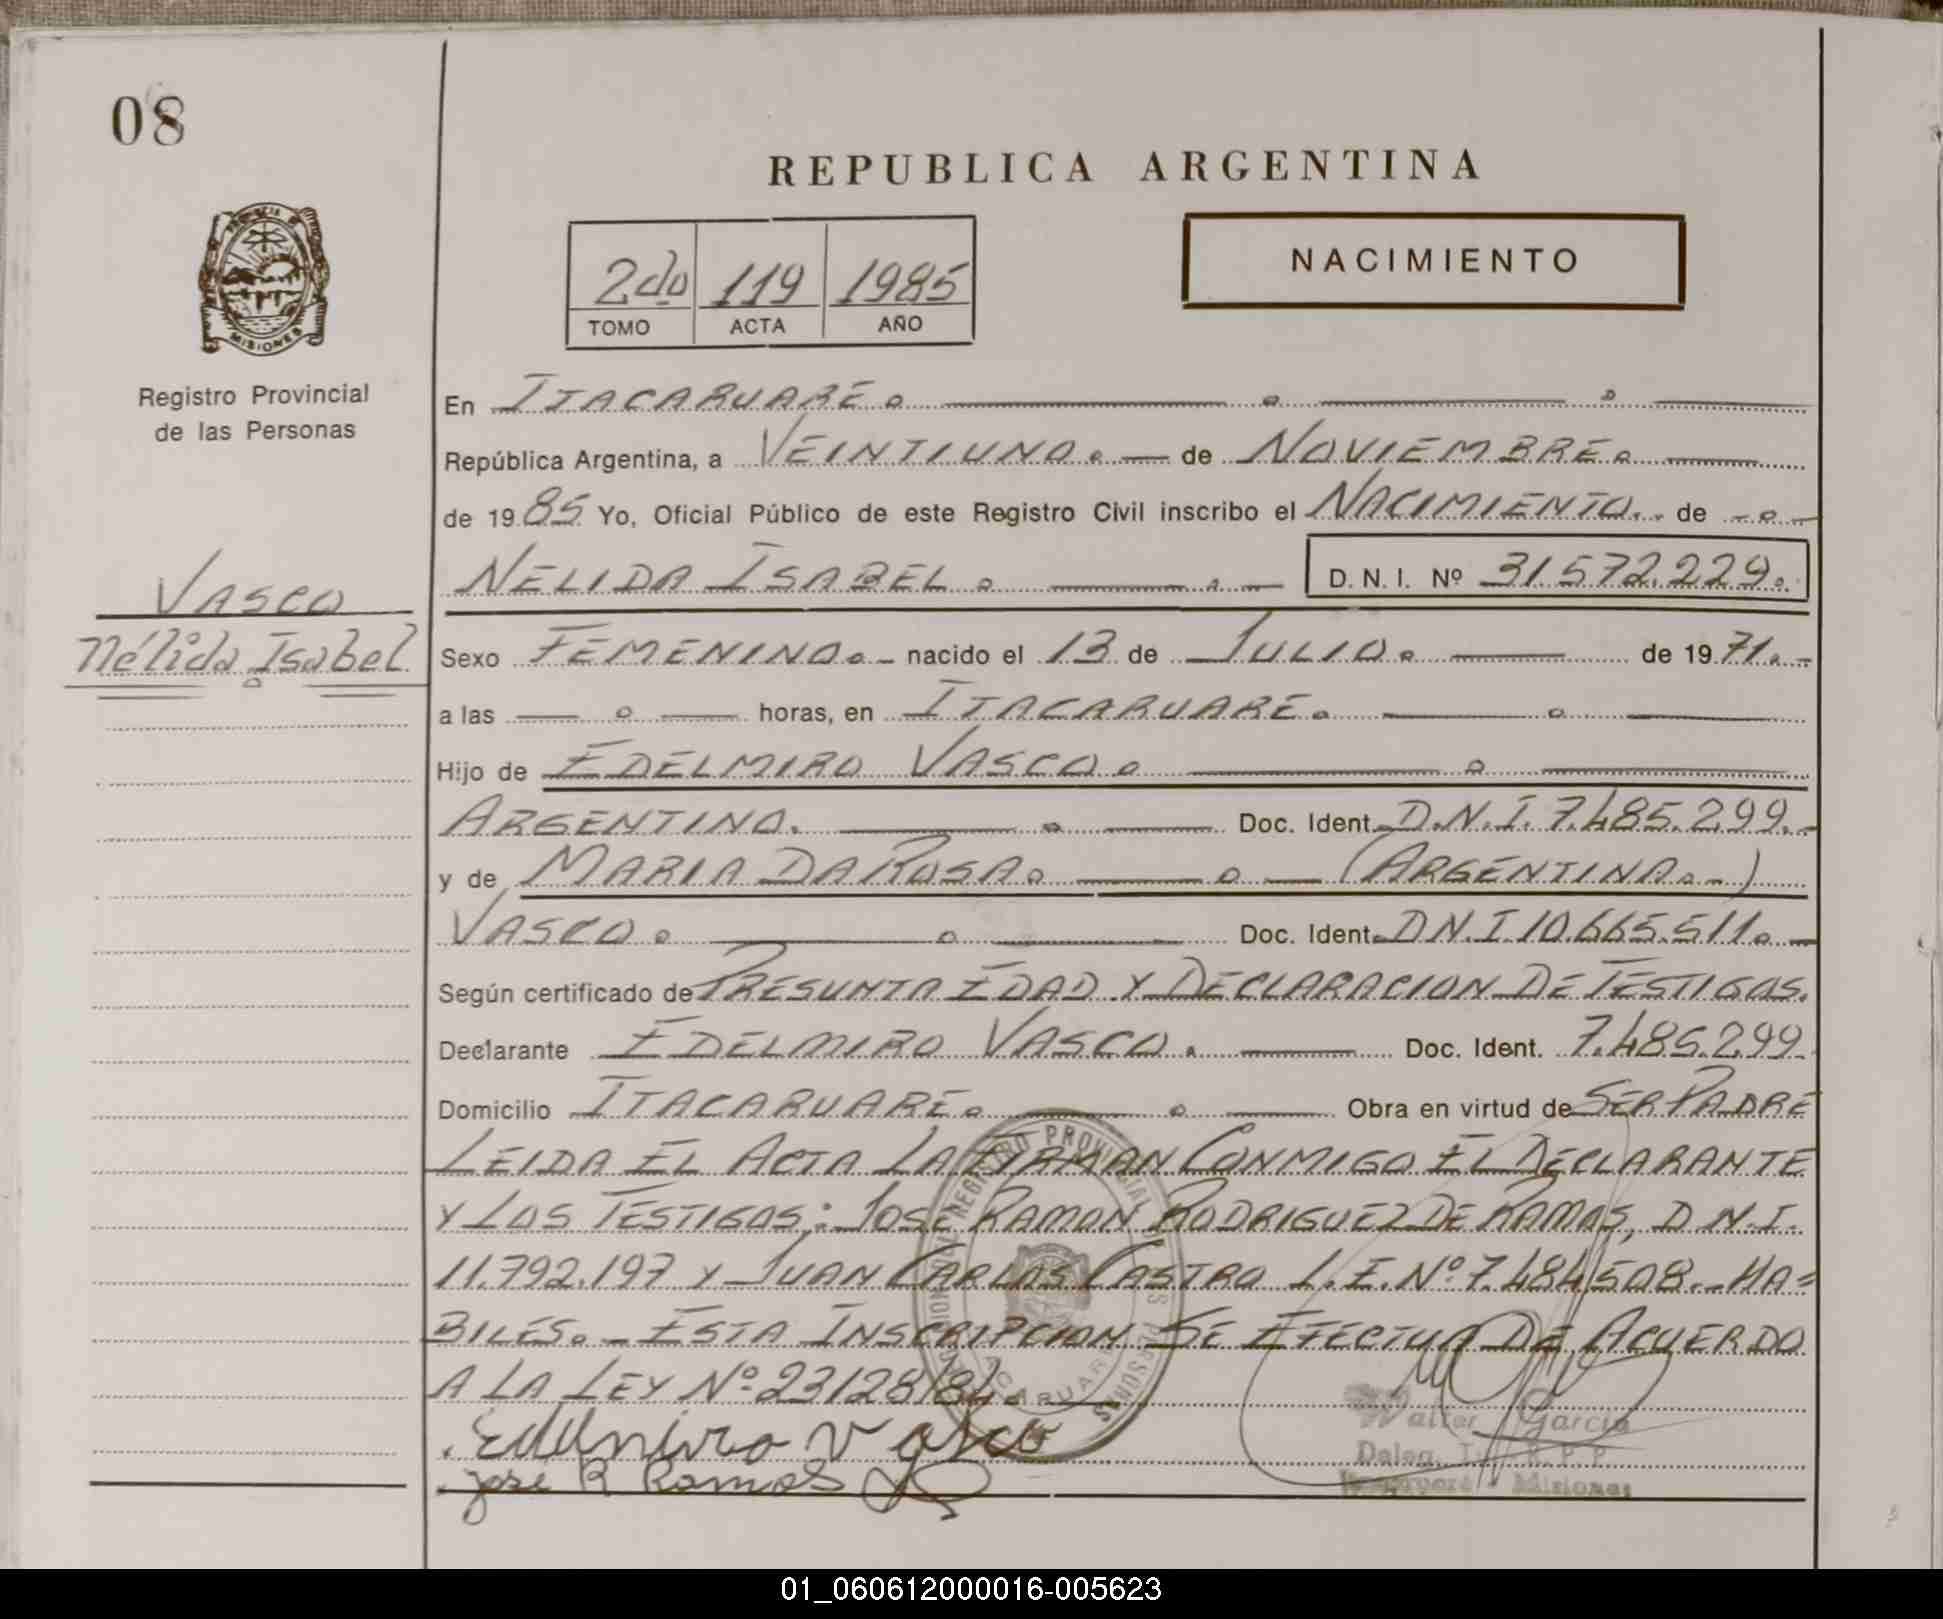 08
REPUBLICA ARGENTINA
2do 119 1985
TOMO ACTA AÑO
NACIMIENTO
MISIONES
Registro Provincial
de las Personas
En ITACARUARE.
República Argentina, a VEINTIUNO. de NOVIEMBRE.
de 1985 Yo, Oficial Público de este Registro Civil inscribo el NACIMIENTO. de
NELIDA ISABEL. D. N. I. Nº 31.572.229.
VASCO
Nélida Isabel
Sexo FEMENINO. nacido el 13 de JULIO. de 1971.
a las horas, en ITACARUARE.
Hijo de EDELMIRO VASCO.
ARGENTINO. Doc. Ident. D.N.I. 7.485.299.
y de MARIA DA ROSA. (ARGENTINA.-)
VASCO. Doc. Ident. D N.I 10.665.511.
Según certificado de PRESUNTA EDAD Y DECLARACION DE TESTIGOS.
Declarante EDELMIRO VASCO. Doc. Ident. 7.485.299
Domicilio ITACARUARE. Obra en virtud de SER PADRE
LEIDA EL ACTA LA FIRMAN CONMIGO EL DECLARANTE
Y LOS TESTIGOS: JOSE RAMON RODRIGUEZ DE RAMOS, D.N.I.
11.792.197 Y JUAN CARLOS CASTRO L.E. Nº 7.484508.- HA=
BILES.- ESTA INSCRIPCION SE EFECTUA DE ACUERDO
A LA LEY Nº 23128/84.
Edelmiro Vasco
Jose R Ramos
Walter Garcia
Deleg. R.P.P.
Misiones
01_060612000016-005623